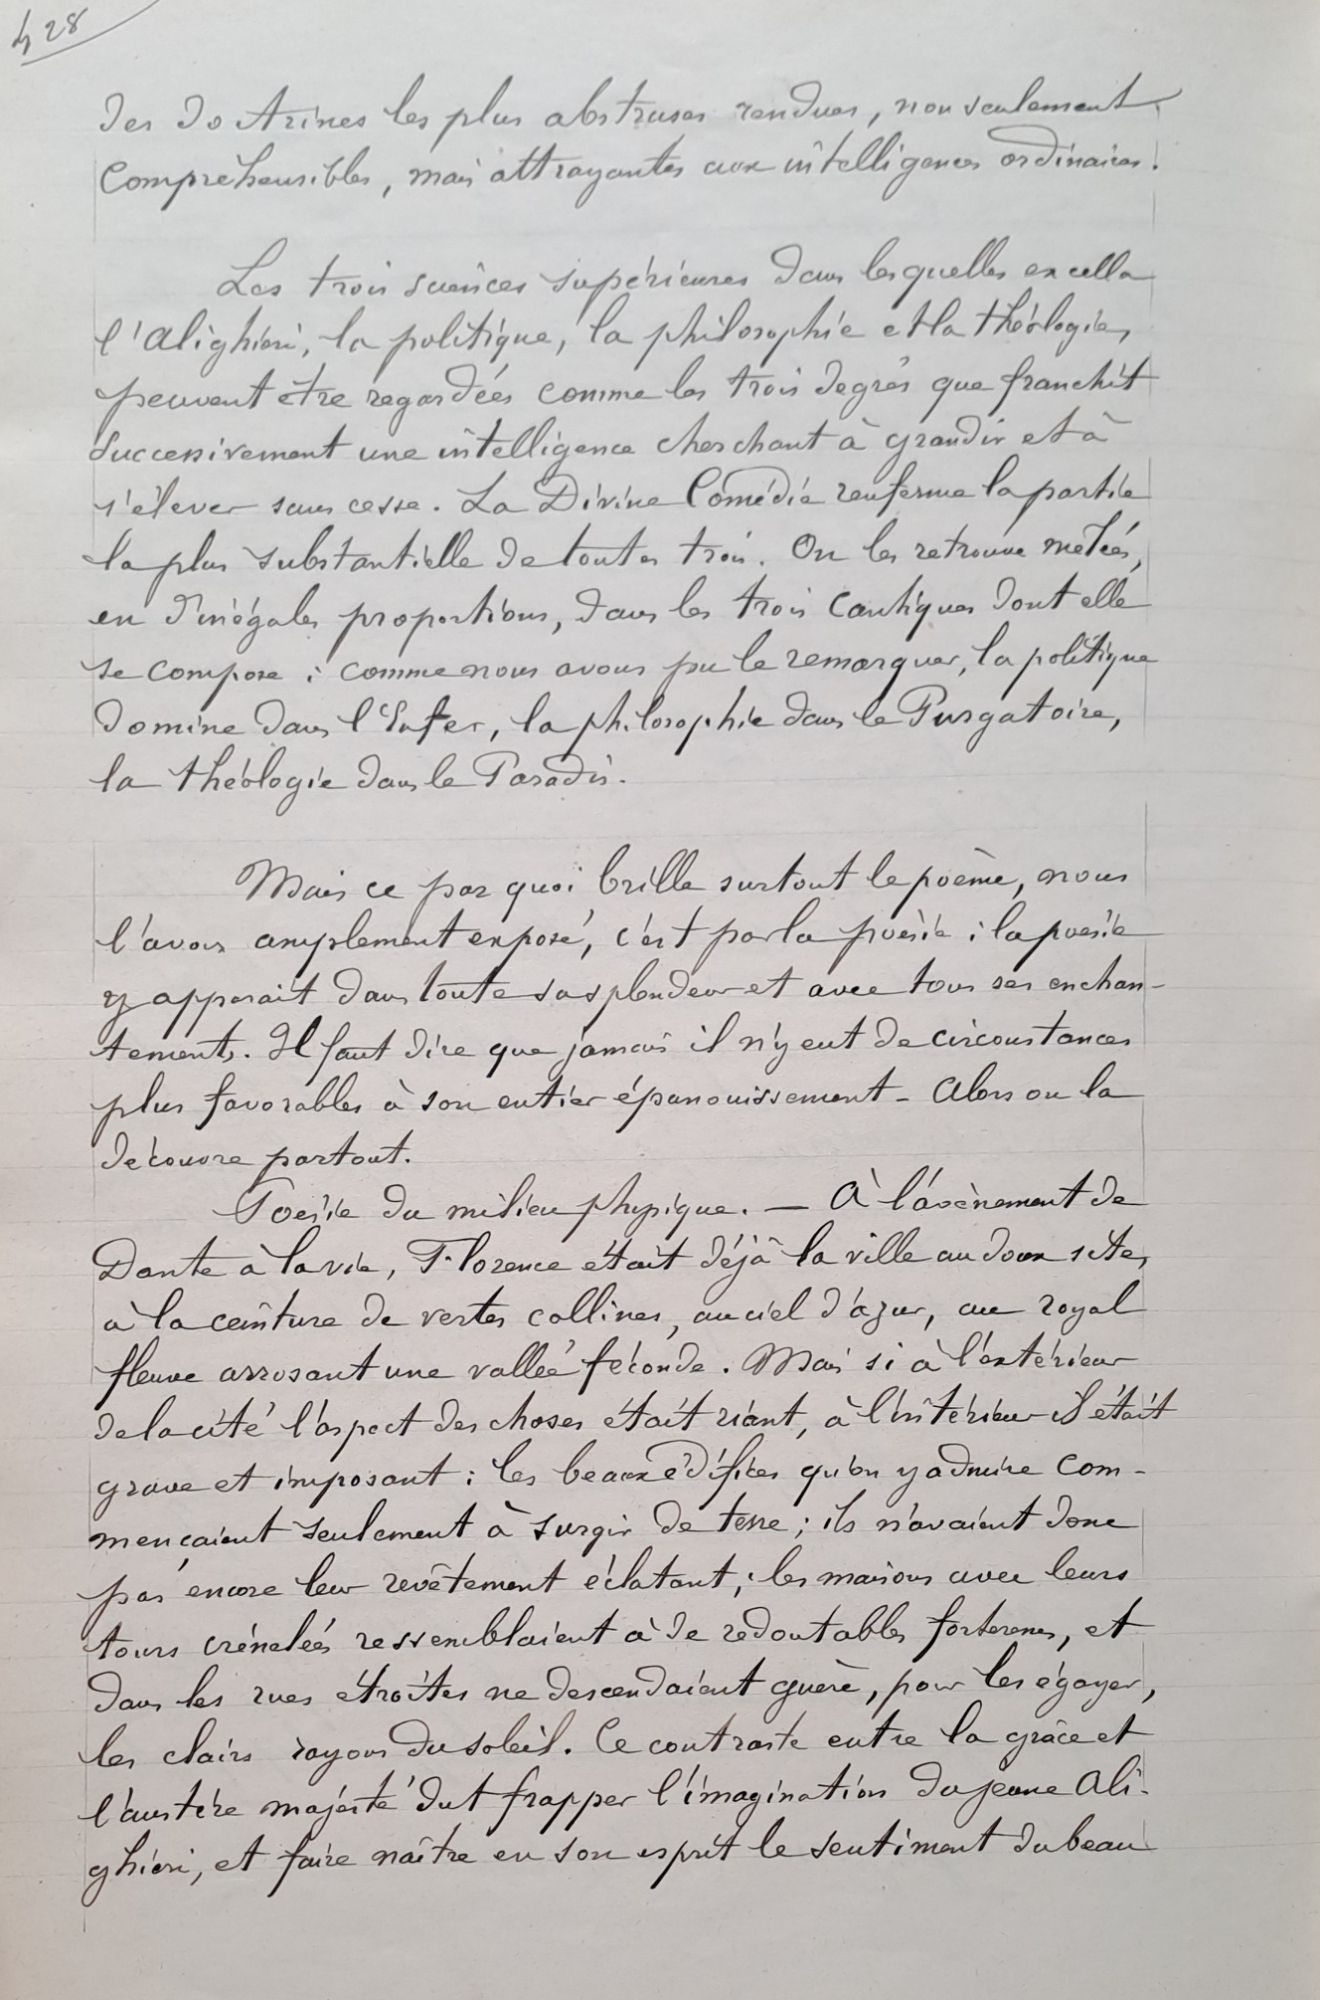 428
des doctrines les plus abstruses rendues, non seulement
compréhensibles, mais attrayantes aux intelligences ordinaires.
Les trois sciences supérieures dans lesquelles excella
l'Alighieri, la politique, la philosophie et la théologie,
peuvent être regardées comme les trois degrés que franchit
successivement une intelligence cherchant à grandir et à
s'élever sans cesse. La Divine Comédie renferme la partie
la plus substantielle de toutes trois. On les retrouve mêlées,
en d'inégales proportions, dans les trois Cantiques dont elle
se compose : comme nous avons pu le remarquer, la politique
domine dans l'Enfer, la philosophie dans le Purgatoire,
la théologie dans le Paradis.
Mais ce par quoi brille surtout le poème, nous
l'avons amplement exposé, c'est par la poésie : la poésie
y apparait dans toute sa splendeur et avec tous ses enchan-
tements. Il faut dire que jamais il n'y eut de circonstances
plus favorables à son entier épanouissement - Alors on la
découvre partout.
Poésie du milieu physique. — À l'avènement de
Dante à la vie, Florence était déjà la ville au doux site,
à la ceinture de vertes collines, au ciel d'azur, au royal
fleuve arrosant une vallée féconde. Mais si à l'extérieur
de la cité l'aspect des choses était riant, à l'intérieur il était
grave et imposant : les beaux édifices qu'on y admire com-
mençaient seulement à surgir de terre ; ils n'avaient donc
pas encore leur revêtement éclatant ; les maisons avec leurs
tours crénelées ressemblaient à de redoutables forteresses, et
dans les rues étroites ne descendaient guère, pour les égayer,
les clairs rayons du soleil. Ce contraste entre la grâce et
l'austère majesté dut frapper l'imagination du jeune Ali-
ghieri, et faire naître en son esprit le sentiment du beau